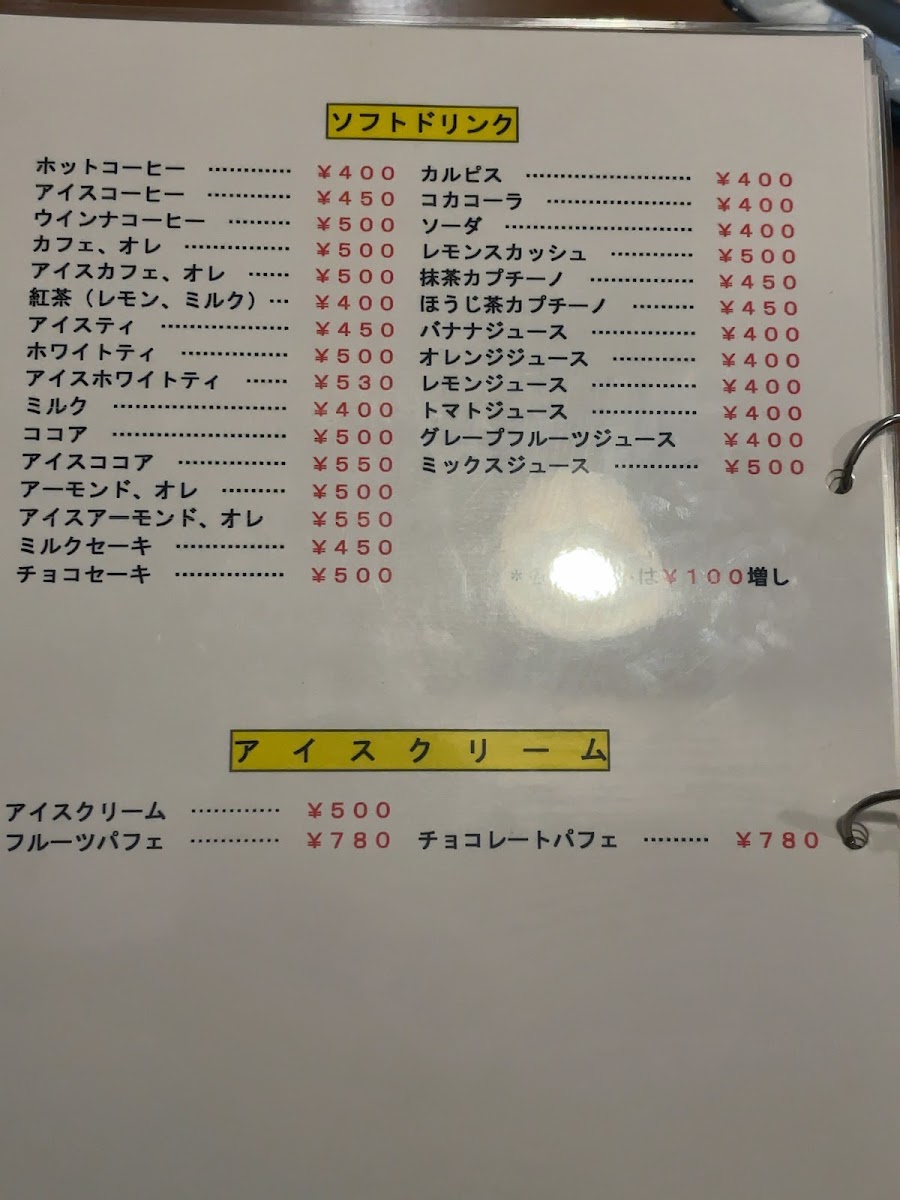 ソフトドリンク
ホットコーヒー ………… ¥400
アイスコーヒー ………… ¥450
ウインナコーヒー ……… ¥500
カフェ、オレ …………… ¥500
アイスカフェ、オレ …… ¥500
紅茶（レモン、ミルク）… ¥400
アイスティ ……………… ¥450
ホワイトティ …………… ¥500
アイスホワイトティ …… ¥530
ミルク …………………… ¥400
ココア …………………… ¥500
アイスココア …………… ¥550
アーモンド、オレ ……… ¥500
アイスアーモンド、オレ ¥550
ミルクセーキ …………… ¥450
チョコセーキ …………… ¥500
カルピス …………………… ¥400
コカコーラ ………………… ¥400
ソーダ ……………………… ¥400
レモンスカッシュ ………… ¥500
抹茶カプチーノ …………… ¥450
ほうじ茶カプチーノ ……… ¥450
バナナジュース …………… ¥400
オレンジジュース ………… ¥400
レモンジュース …………… ¥400
トマトジュース …………… ¥400
グレープフルーツジュース ¥400
ミックスジュース ………… ¥500
＊は¥100増し
アイスクリーム
アイスクリーム ………… ¥500
フルーツパフェ ………… ¥780
チョコレートパフェ ……… ¥780